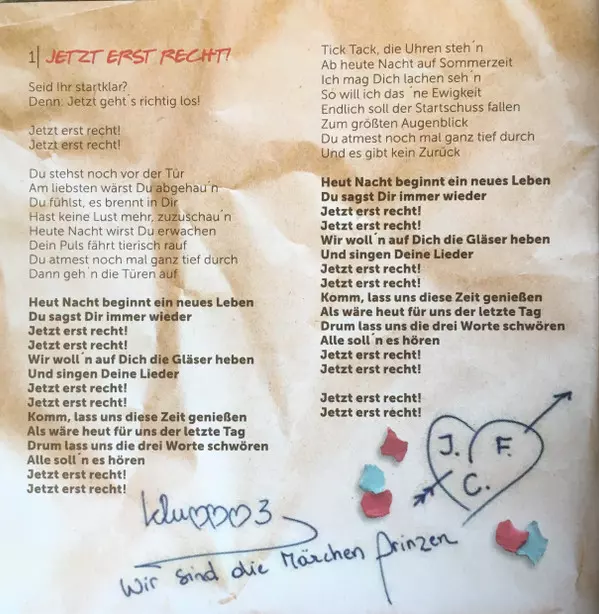 1| JETZT ERST RECHT!
Seid Ihr startklar?
Denn: Jetzt geht´s richtig los!
Jetzt erst recht!
Jetzt erst recht!
Du stehst noch vor der Tür
Am liebsten wärst Du abgehau´n
Du fühlst, es brennt in Dir
Hast keine Lust mehr, zuzuschau´n
Heute Nacht wirst Du erwachen
Dein Puls fährt tierisch rauf
Du atmest noch mal ganz tief durch
Dann geh´n die Türen auf
Heut Nacht beginnt ein neues Leben
Du sagst Dir immer wieder
Jetzt erst recht!
Jetzt erst recht!
Wir woll´n auf Dich die Gläser heben
Und singen Deine Lieder
Jetzt erst recht!
Jetzt erst recht!
Komm, lass uns diese Zeit genießen
Als wäre heut für uns der letzte Tag
Drum lass uns die drei Worte schwören
Alle soll´n es hören
Jetzt erst recht!
Jetzt erst recht!
Tick Tack, die Uhren steh´n
Ab heute Nacht auf Sommerzeit
Ich mag Dich lachen seh´n
So will ich das ´ne Ewigkeit
Endlich soll der Startschuss fallen
Zum größten Augenblick
Du atmest noch mal ganz tief durch
Und es gibt kein Zurück
Heut Nacht beginnt ein neues Leben
Du sagst Dir immer wieder
Jetzt erst recht!
Jetzt erst recht!
Wir woll´n auf Dich die Gläser heben
Und singen Deine Lieder
Jetzt erst recht!
Jetzt erst recht!
Komm, lass uns diese Zeit genießen
Als wäre heut für uns der letzte Tag
Drum lass uns die drei Worte schwören
Alle soll´n es hören
Jetzt erst recht!
Jetzt erst recht!
Jetzt erst recht!
Jetzt erst recht!
J. F.
C.
Klu♡♡♡3
Wir sind die Märchen prinzen